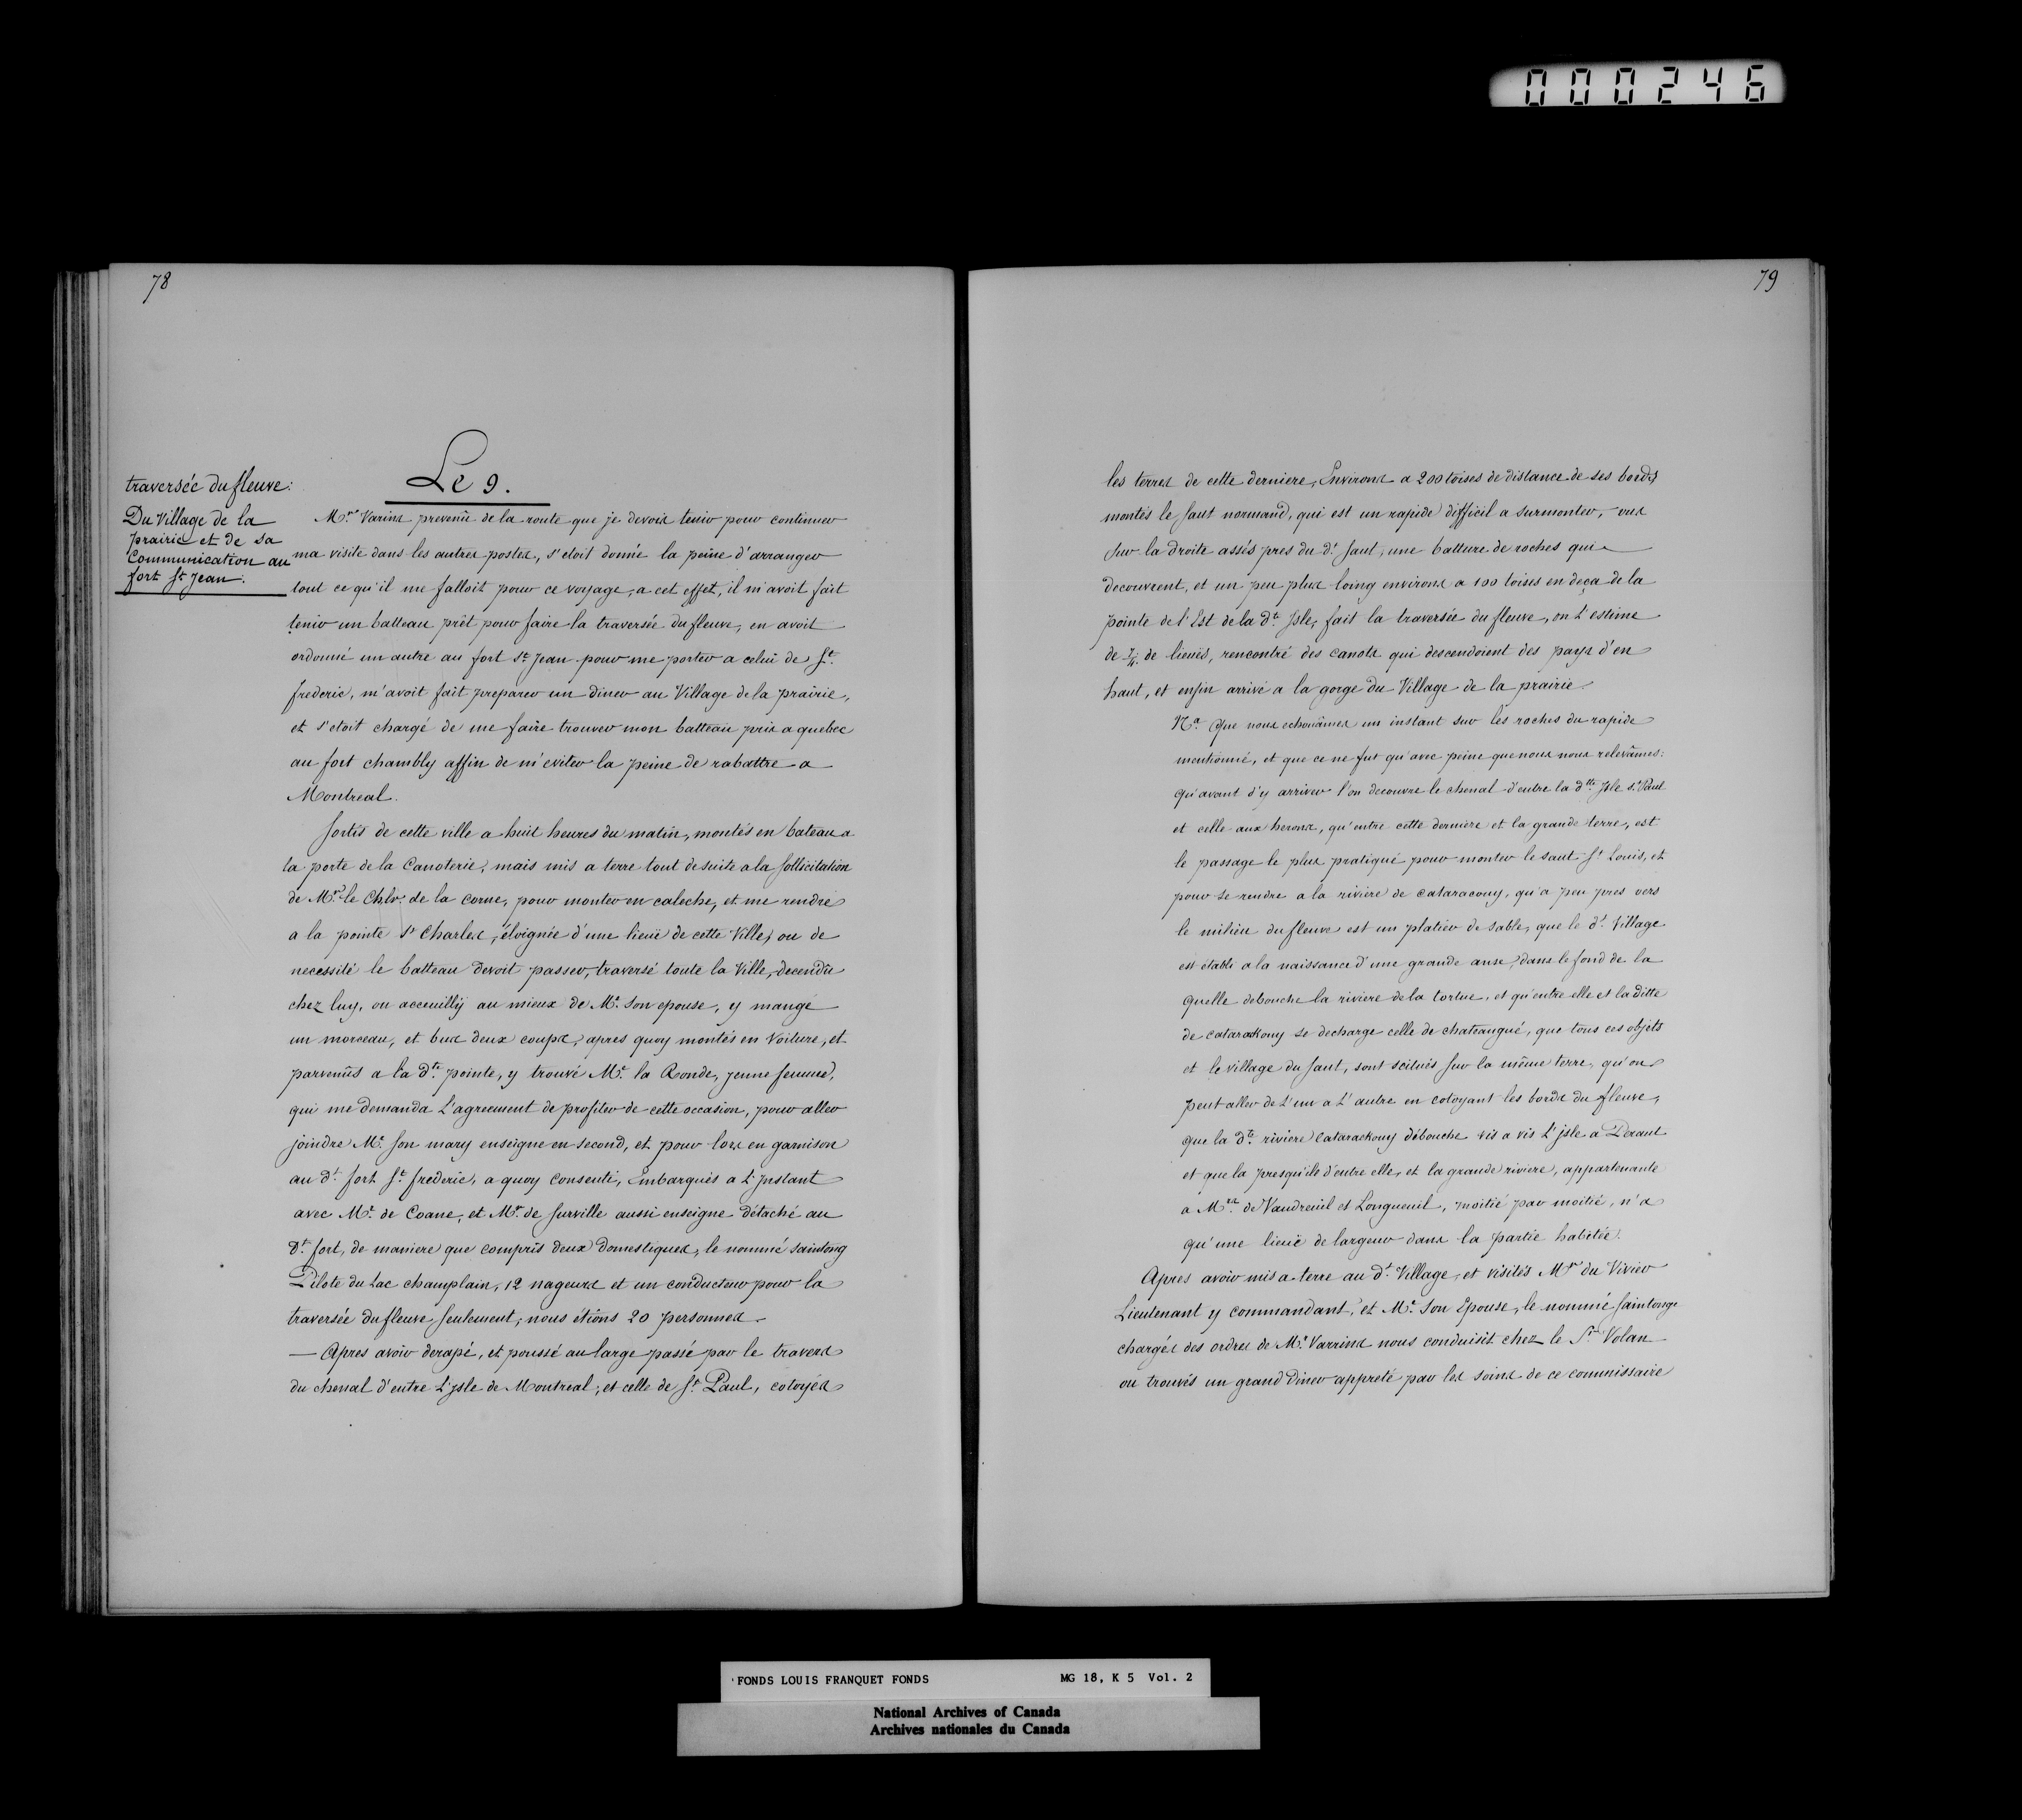 000246
78
traversée du fleuve:
Du Village de la
prairie et de sa
Communication au
fort St Jean.
Le 9.
Mr. Varins prevenû de la route que je devois tenir pour continuer
ma visite dans les autres postes, s'etoit donnée la peine d'arranger
tout ce qu'il me falloit pour ce voyage, a cet effet, il m'avoit fait
tenir un batteau prêt pour faire la traversée du fleuve, en avoit
ordonné un autre au fort St. Jean pour me porter a celui de St.
frederic, m'avoit fait preparer un diner au Village de la prairie,
et s'etoit chargé de me faire trouver mon batteau pris a quebec
au fort chambly affin de m'eviter la peine de rabattre a
Montreal.
Sortis de cette ville a huit heures du matin, montés en bateau a
la porte de la Canoterie, mais mis a terre tout desuite a la sollicitation
de Mr. le Chlr. de la Corne, pour monter en caleche, et me rendre
a la pointe St Charles, éloignée d'une lieuë de cette Ville, ou de
necessité le batteau devoit passer, traversé toute la Ville, decendû
chez luy, ou acceuilly au mieux de Me. son epouse, y mangé
un morceau, et bus deux coups, apres quoy montés en Voiture, et
parvenûs a la dte. pointe, y trouvé Me. la Ronde, jeune femme,
qui me demanda L'agrement de profiter de cette occasion, pour aller
joindre Mr. son mary enseigne en second, et pour lors en garnison
au dt. fort St. frederic, a quoy consenti, Embarqués a L'Instant
avec Mr. de Coane, et Mr. de Surville aussi enseigne détaché au
dt. fort, de maniere que compris deux Domestiques, le nommé saintong
Pilote du Lac champlain, 12 nageurs et un conducteur pour la
traversée du fleuve seulement, nous étions 20 personnes.
— Apres avoir derapé, et poussé au large passé par le travers
du chenal d'entre L'jsle de Montreal, et celle de St. Paul, cotoyés
79
les terres de cette derniere, Environs a 200 toises de distance de ses bords
montés le Saut normand, qui est un rapide difficil a surmonter, vus
sur la droite assés pres du dt. Saut, une batture de roches qui
decouvrent, et un peu plus loing environs a 100 toises en deça de la
pointe de l'Est de la dte. Isle, fait la traversée du fleuve, on L'estime
de de lieuës, rencontré des canots qui descendoient des pays d'en
haut, et enfin arrivé a la gorge du Village de la prairie.
Na. Que nous echouâmes un instant sur les roches du rapide
mentionné, et que ce ne fut qu'avec peine que nous nous relevâmes:
qu'avant d'y arriver l'on decouvre le chenal d'entre la dtte Isle St. Paul
et celle aux herons, qu'entre cette derniere et la grande terre, est
le passage le plus pratiqué pour monter le saut St Louis, et
pour se rendre a la riviere de cataracouy, qu'a peu pres vers
le milieu du fleuve est un platier de sable, que le dt. Village
est établi a la naissance d'une grande anse, dans le fond de la
quelle debouche la riviere de la tortue, et qu'entre elle et la ditte
de catarakouy se decharge celle de chateaugué, que tous ces objets
et le village du Saut, sont scitués sur la même terre, qu'on
peut aller de L'un a L'autre en cotoyant les bords du fleuve,
que la dte. riviere Catarackouy débouche vis a vis L'jsle a Peraut
et que la presqu'ile d'entre elle, et la grande riviere, appartenante
a Mrs. de Vaudreuil et Longueuil, moitié par moitié, n'a
qu'une lieuë de largeur dans la partie habitée.
Apres avoir mis a terre au dt. Village, et visités Mr. du Vivier
Lieutenant y commandant, et Me. Son Epouse, le nommé saintonge
chargés des ordres de Mr. Varrins nous conduisit chez le Sr. Volan
ou trouvés un grand diner appreté par les soins de ce commissaire
FONDS LOUIS FRANQUET FONDS MG 18, K 5 Vol. 2
National Archives of Canada
Archives nationales du Canada